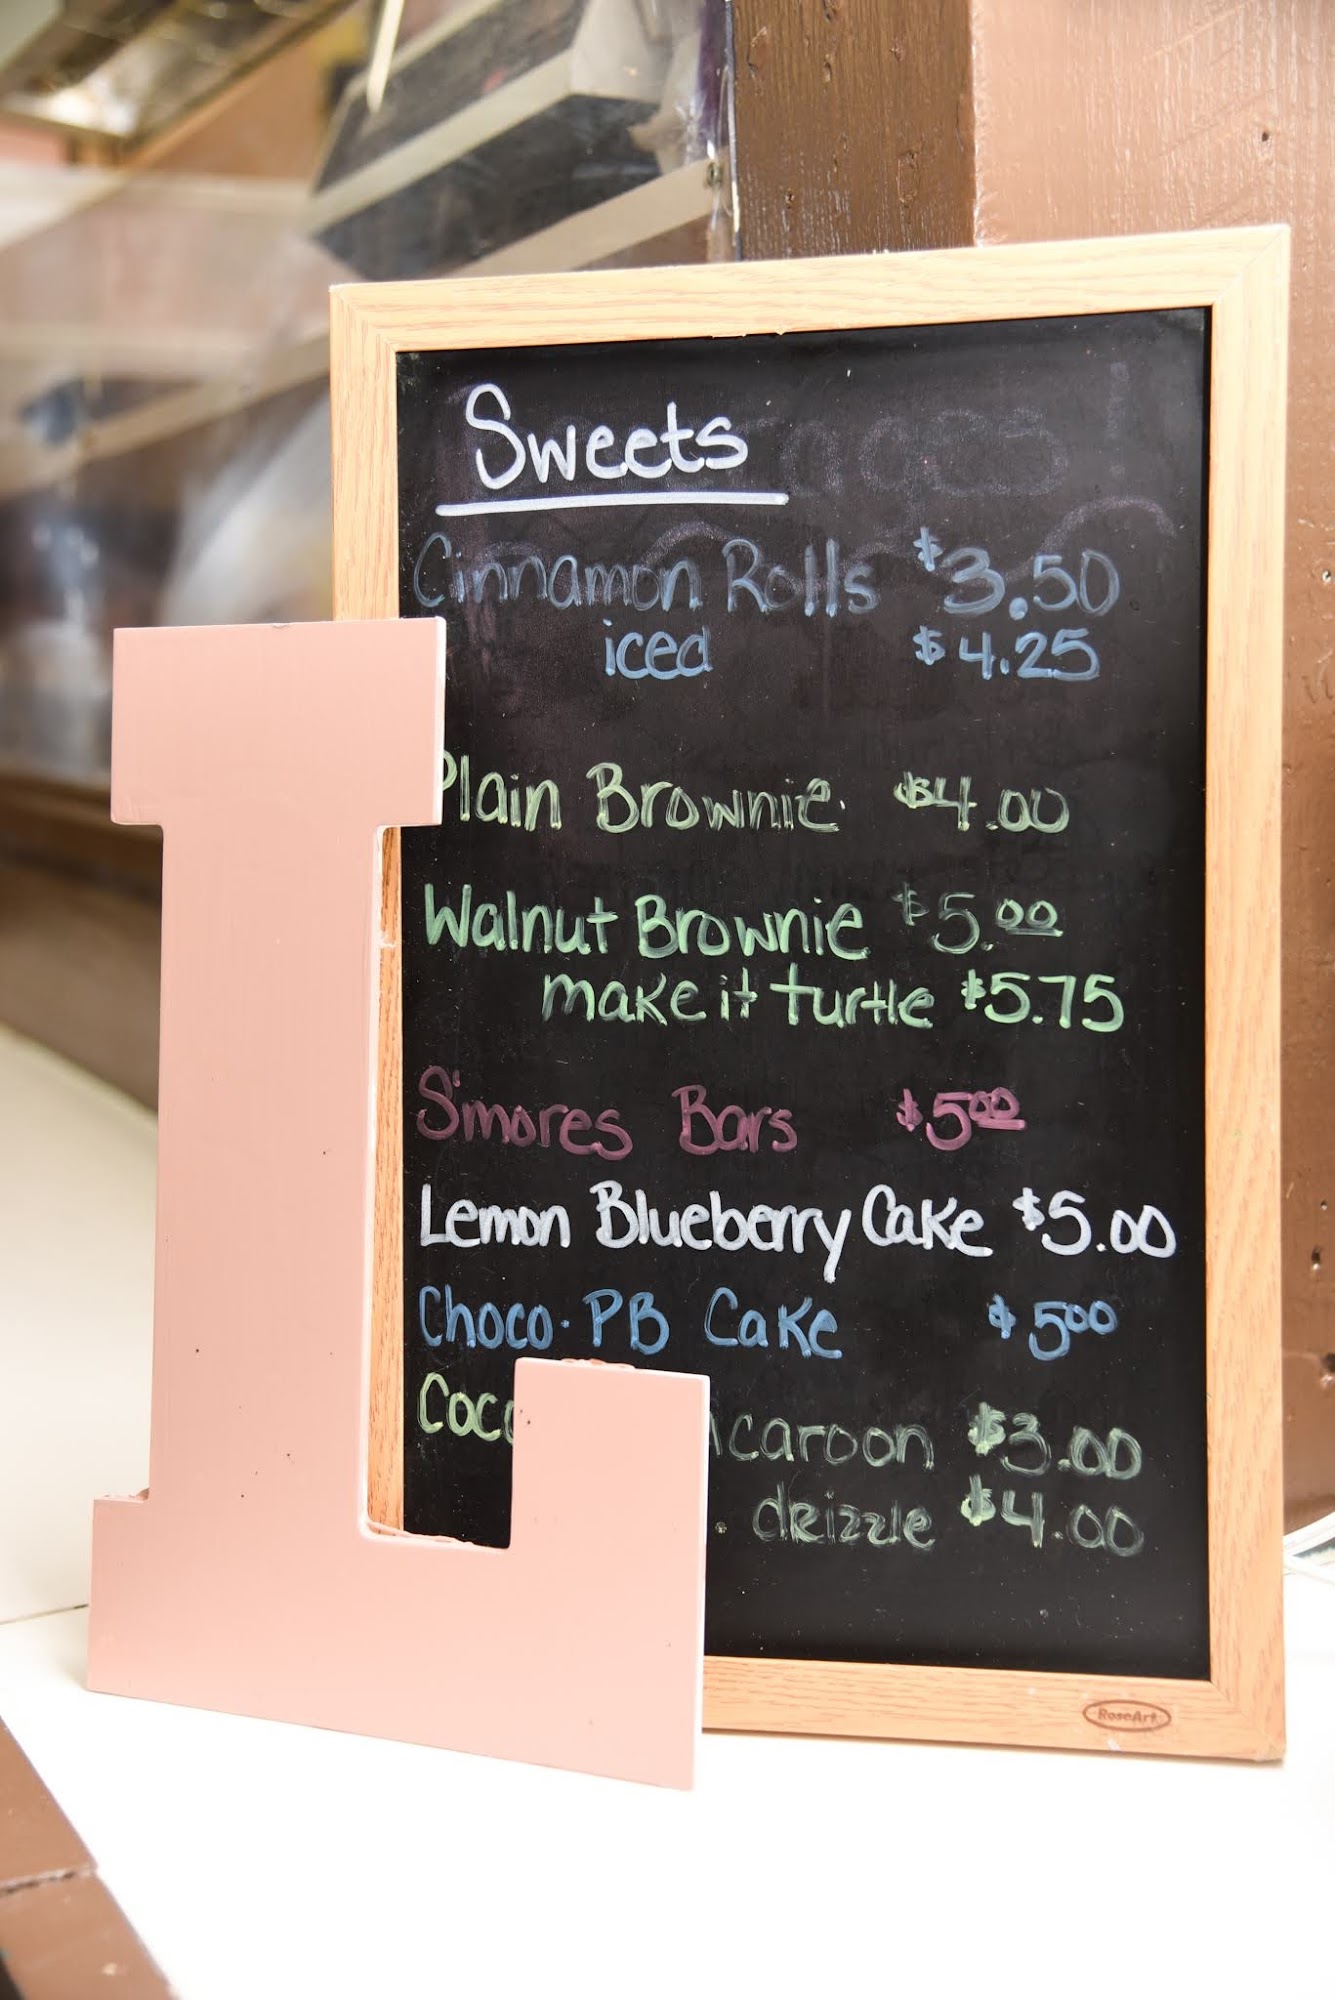 Sweets
Cinnamon Rolls $3.50
iced $4.25
Plain Brownie $4.00
Walnut Brownie $5.00
make it turtle $5.75
S'mores Bars $5.00
Lemon Blueberry Cake $5.00
Choco-PB Cake $5.00
Coco acaroon $3.00
. drizzle $4.00
RoseArt
L